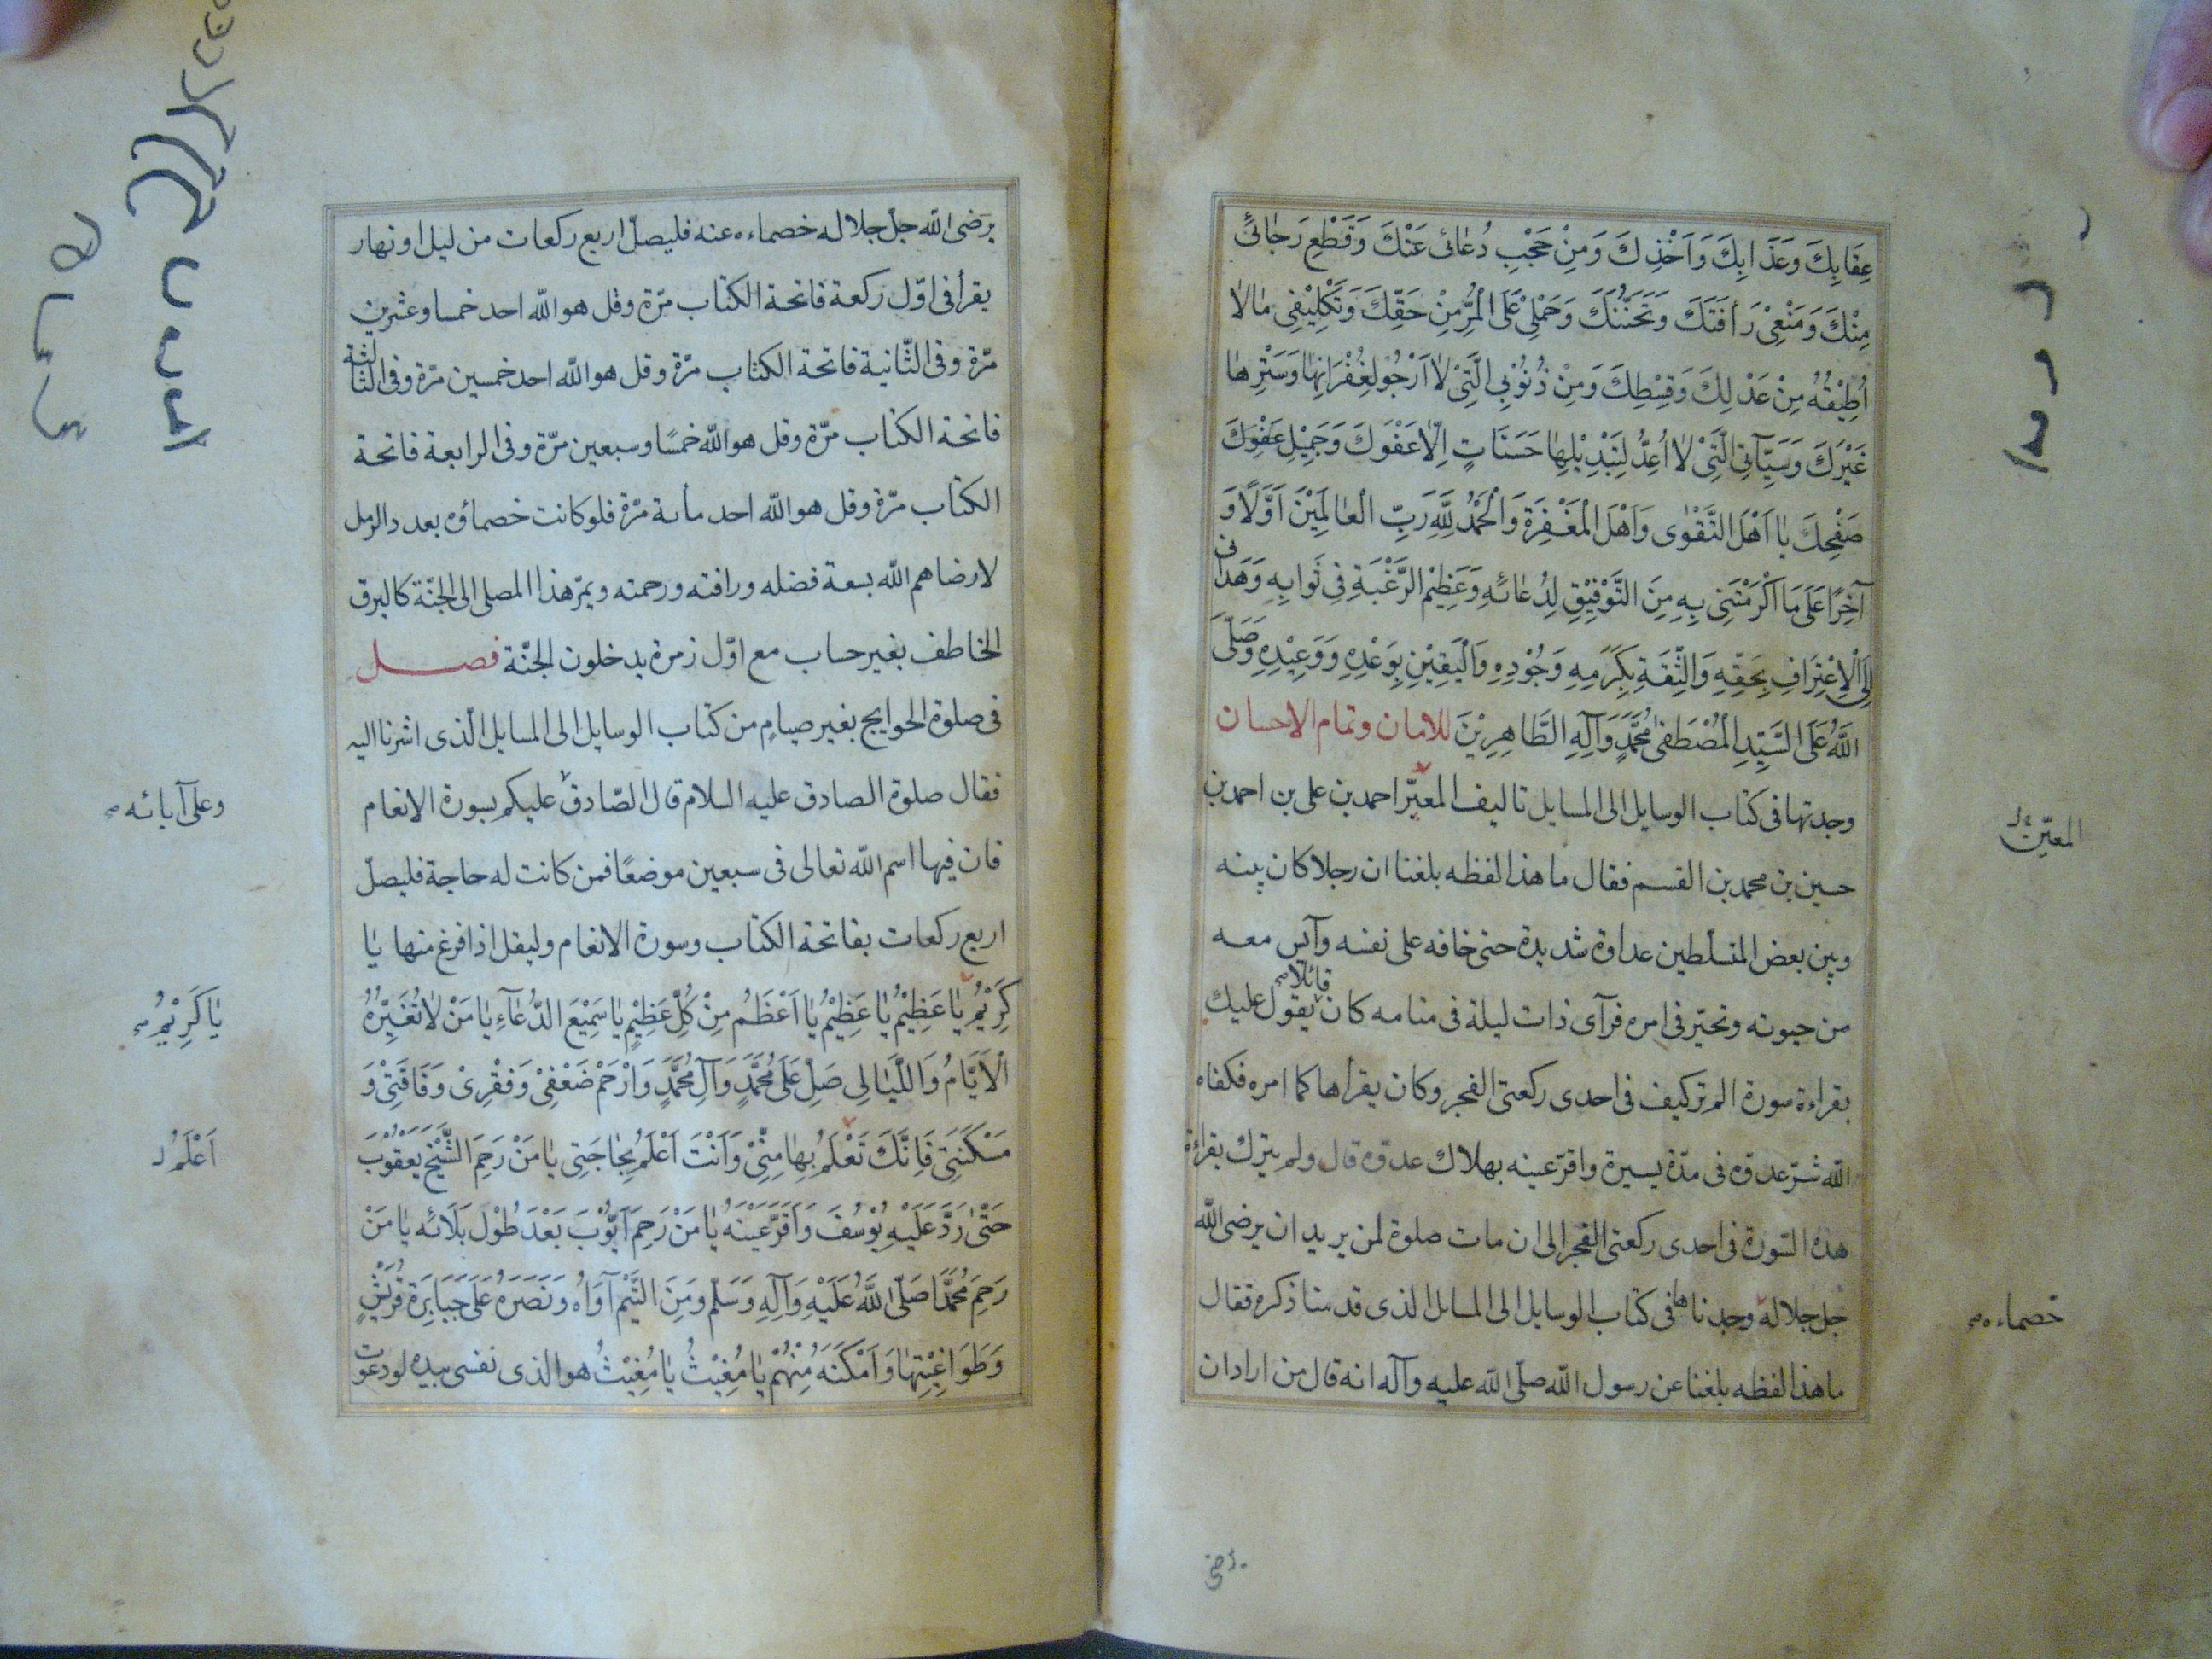 عِقَابِكَ وَعَذَابِكَ وَاَخْذِكَ وَمِنْ حَجْبِ دُعٰائى عَنْكَ وَقَطْعِ رَجٰائىٔ
مِنْكَ وَمَنْعِىْ رَأفَتَكَ وَتَحَنُّنَكَ وَحَمْلِىْ عَلَى الْمُرِّ مِنْ حَقِّكَ وَتَكْلِيْفِى مٰالٰا
اُطِيْقُهُ مِنْ عَدْلِكَ وَقِسْطِكَ وَمِنْ ذُنُوْبِى الَّتِىْ لٰا اَرْجُو لِغُفْرَانِهٰا وَسَتْرِهٰا
غَيْرَكَ وَسَيِّآتِىَ الَّتِىْ لٰا اُعِدُّ لِتَبْدِيْلِهٰا حَسَنَاتٍ اِلّٰا عَفْوَكَ وَجَمِيْلِ عَفْوِكَ
صَفْحِكَ يٰا اَهْلَ التَّقْوٰى وَاَهْلَ الْمَغْفِرَةِ وَالْحَمْدُ لِلّٰهِ رَبِّ الْعٰالَمِيْنَ اَوَّلًا وَ
آخِرًا عَلَى مَا اَكْرَمْتَنِى بِهِ مِنَ التَّوْفِيْقِ لِدُعٰائِهِ وَعَظِيْمِ الرَّغْبَةِ فِى ثَوَابِهِ وَهَدَانِى
اِلَى الْاِعْتِرَافِ بِحَقِّهِ وَالثِّقَةِ بِكَرَمِهِ وَجُوْدِهِ وَالْيَقِيْنِ بِوَعْدِهِ وَوَعِيْدِهِ وَصَلَّى
اللّٰهُ عَلَى السَّيِّدِ الْمُصْطَفٰى مُحَمَّدٍ وَآلِهِ الطَّاهِرِيْنَ للامان وتمام الاحسان
وجدتها فى كتاب الوسايل الى المسايل تاليف المعيّر احمد بن على بن احمد بن
المعيّن
حسين بن محمد بن القسم فقال ما هذا لفظه بلغنا ان رجلا كان بينه
وبين بعض المتسلّطين عداوة شديدة حتى خافه على نفسه وآيس معه
من حيوته وتحيّر فى امره فرآى ذات ليلة فى منامه كان قائلا يقول عليك
بقراءة سورة الم تر كيف فى احدى ركعتى الفجر وكان يقرأها كما امره فكفاه
اللّه شرّ عدوّه فى مدّة يسيرة واقرّ عينه بهلاك عدوّه قال ولم يترك بقراءة
هذه السّورة فى احدى ركعتى الفجر الى ان مات صلوة لمن يريد ان يرضى اللّه
جلّ جلاله وجدناها فى كتاب الوسايل الى المسايل الذى قدمنا ذكره فقال
خصماءه
ما هذا لفظه بلغنا عن رسول اللّه صلّى اللّه عليه وآله انه قال من اراد ان
يرضى
يرَضى اللّه جلّ جلاله خصماءه عنه فليصلّ اربع ركعات من ليل او نهار
يقرأ فى اوّل ركعة فاتحة الكتاب مرّة وقل هو اللّه احد خمسا وعشرين
مرّة وفى الثّانية فاتحة الكتاب مرّة وقل هو اللّه احد خمسين مرّة وفى الثّالثة
فاتحة الكتاب مرّة وقل هو اللّه خمسًا وسبعين مرّة وفى الرابعة فاتحة
الكتاب مرّة وقل هو اللّه احد مأىة مرّة فلو كانت خصماؤه بعدد الرمل
لارضاهم اللّه بسعة فضله ورافته ورحمته ويمرّ هذا المصلى الى الجنّة كالبرق
الخاطف بغير حساب مع اوّل زمرة يدخلون الجنّة فصل
فى صلوة الحوايج بغير صيامٍ من كتاب الوسايل الى المسايل الّذى اشرنا اليه
فقال صلوة الصادق عليه السلام قال الصّادق عليكم بسورة الانعام
وعلى آبائه
فان فيها اسم اللّه تعالى فى سبعين موضعًا فمن كانت له حاجة فليصلّ
اربع ركعات بفاتحة الكتاب وسورة الانعام وليقل اذا فرغ منها يٰا
كَرِيْمُ يٰا عَظِيْمُ يٰا عَظِيْمُ يٰا اَعْظَمُ مِنْ كُلِّ عَظِيْمٍ يٰا سَمِيْعَ الدُّعٰآءِ يٰا مَنْ لٰا تُغَيِّرُهُ
يٰا كَرِيْمُ
اْلاَيَّامُ وَاللَّيٰالِى صَلِّ عَلَى مُحَمَّدٍ وَآلِ مُحَمَّدٍ وَارْحَمْ ضَعْفِىْ وَفَقْرِىْ وَفَاقَتِىْ وَ
مَسْكَنَتِى فَاِنَّكَ تَعْلَمُ بِهٰا مِنِّىْ وَاَنْتَ اَعْلَمُ بِحٰاجَتِى يٰا مَنْ رَحِمَ الشَّيْخَ يَعْقُوْبَ
اَعْلَمُ
حَتّٰى رَدَّ عَلَيْهِ يُوْسُفَ وَاَقَرَّ عَيْنَهُ يٰا مَنْ رَحِمَ اَيُّوْبَ بَعْدَ طُوْلِ بَلَائِه يٰا مَنْ
رَحِمَ مُحَمَّدًا صَلَّى اللّٰهُ عَلَيْهِ وَآلِهِ وَسَلَّم وَمِنَ الْيَتْمِ آوَاهُ وَنَصَرَهُ عَلَى جَبَابِرَةِ قُرَيْشٍ
وَطَوَاغِيْتِهٰا وَاَمْكَنَهُ مِنْهُمْ يٰا مُغِيْثُ يٰا مُغِيْثُ هو الذى نفسى بيده لو دعوت